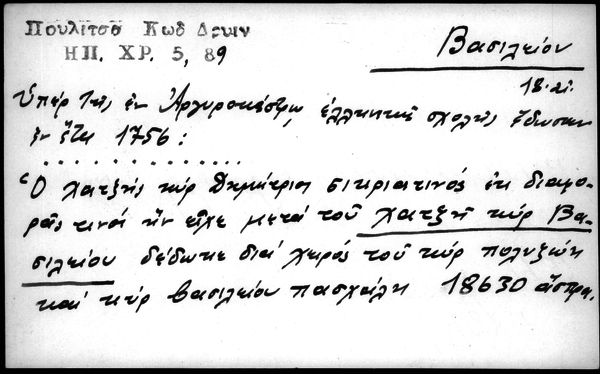 Πουλίτσα Κωδ Δρυιν
ΗΠ. ΧΡ. 5, 89
Βασιλείου
18. αἰ.
Ὑπὲρ τῆς ἐν Ἀργυροκάστρῳ ἑλληνικῆς σχολῆς ἔδωσαν
ἐν ἔτει 1756:
. . . . . . . . . . . . . .
Ὁ χατζῆς κὺρ Δημήτριος σιτριατινός ἐκ διαφο-
ρᾶς τινος ἣν εἶχε μετὰ τοῦ χατζῆ κὺρ Βα-
σιλείου δέδωκε διὰ χειρός τοῦ κὺρ πολυζώη
καὶ κὺρ βασιλείου πασχάλη 18630 ἄσπρα.